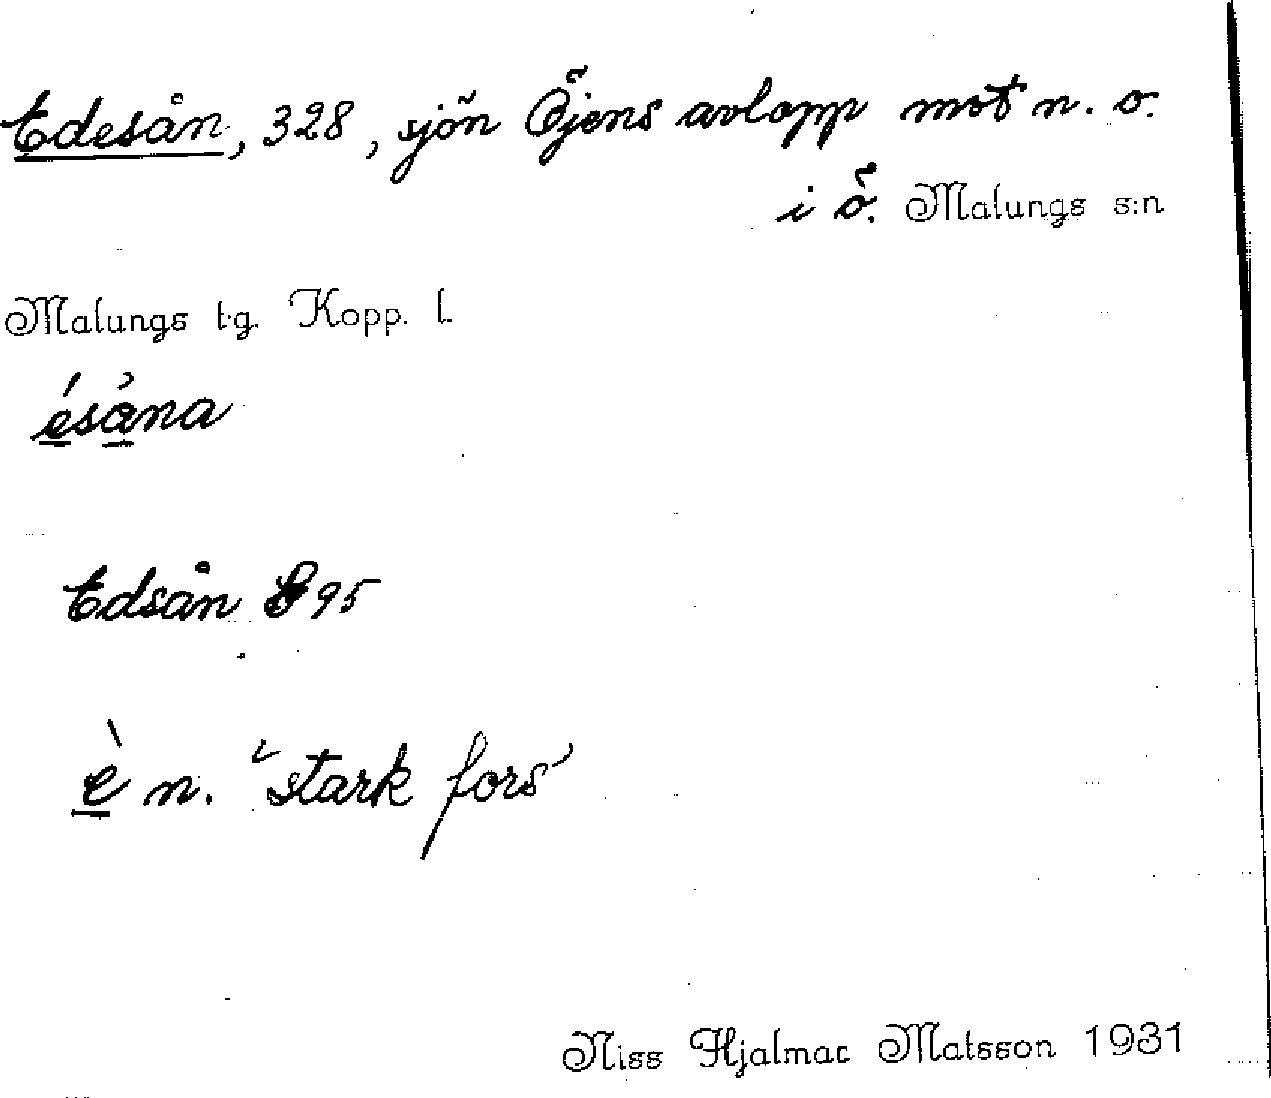 Edesån, 328, sjön Öjens avlopp mot n. o.
i ö. Malungs s:n
Malungs tg. Kopp. l.
ésåna
Edsån 95
è n. 'stark fors'
Niss Hjalmar Matsson 1931